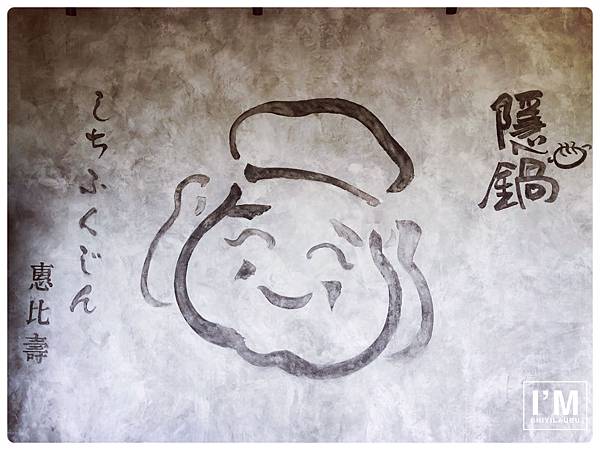 隱鍋
しちふくじん
惠比壽
I'M